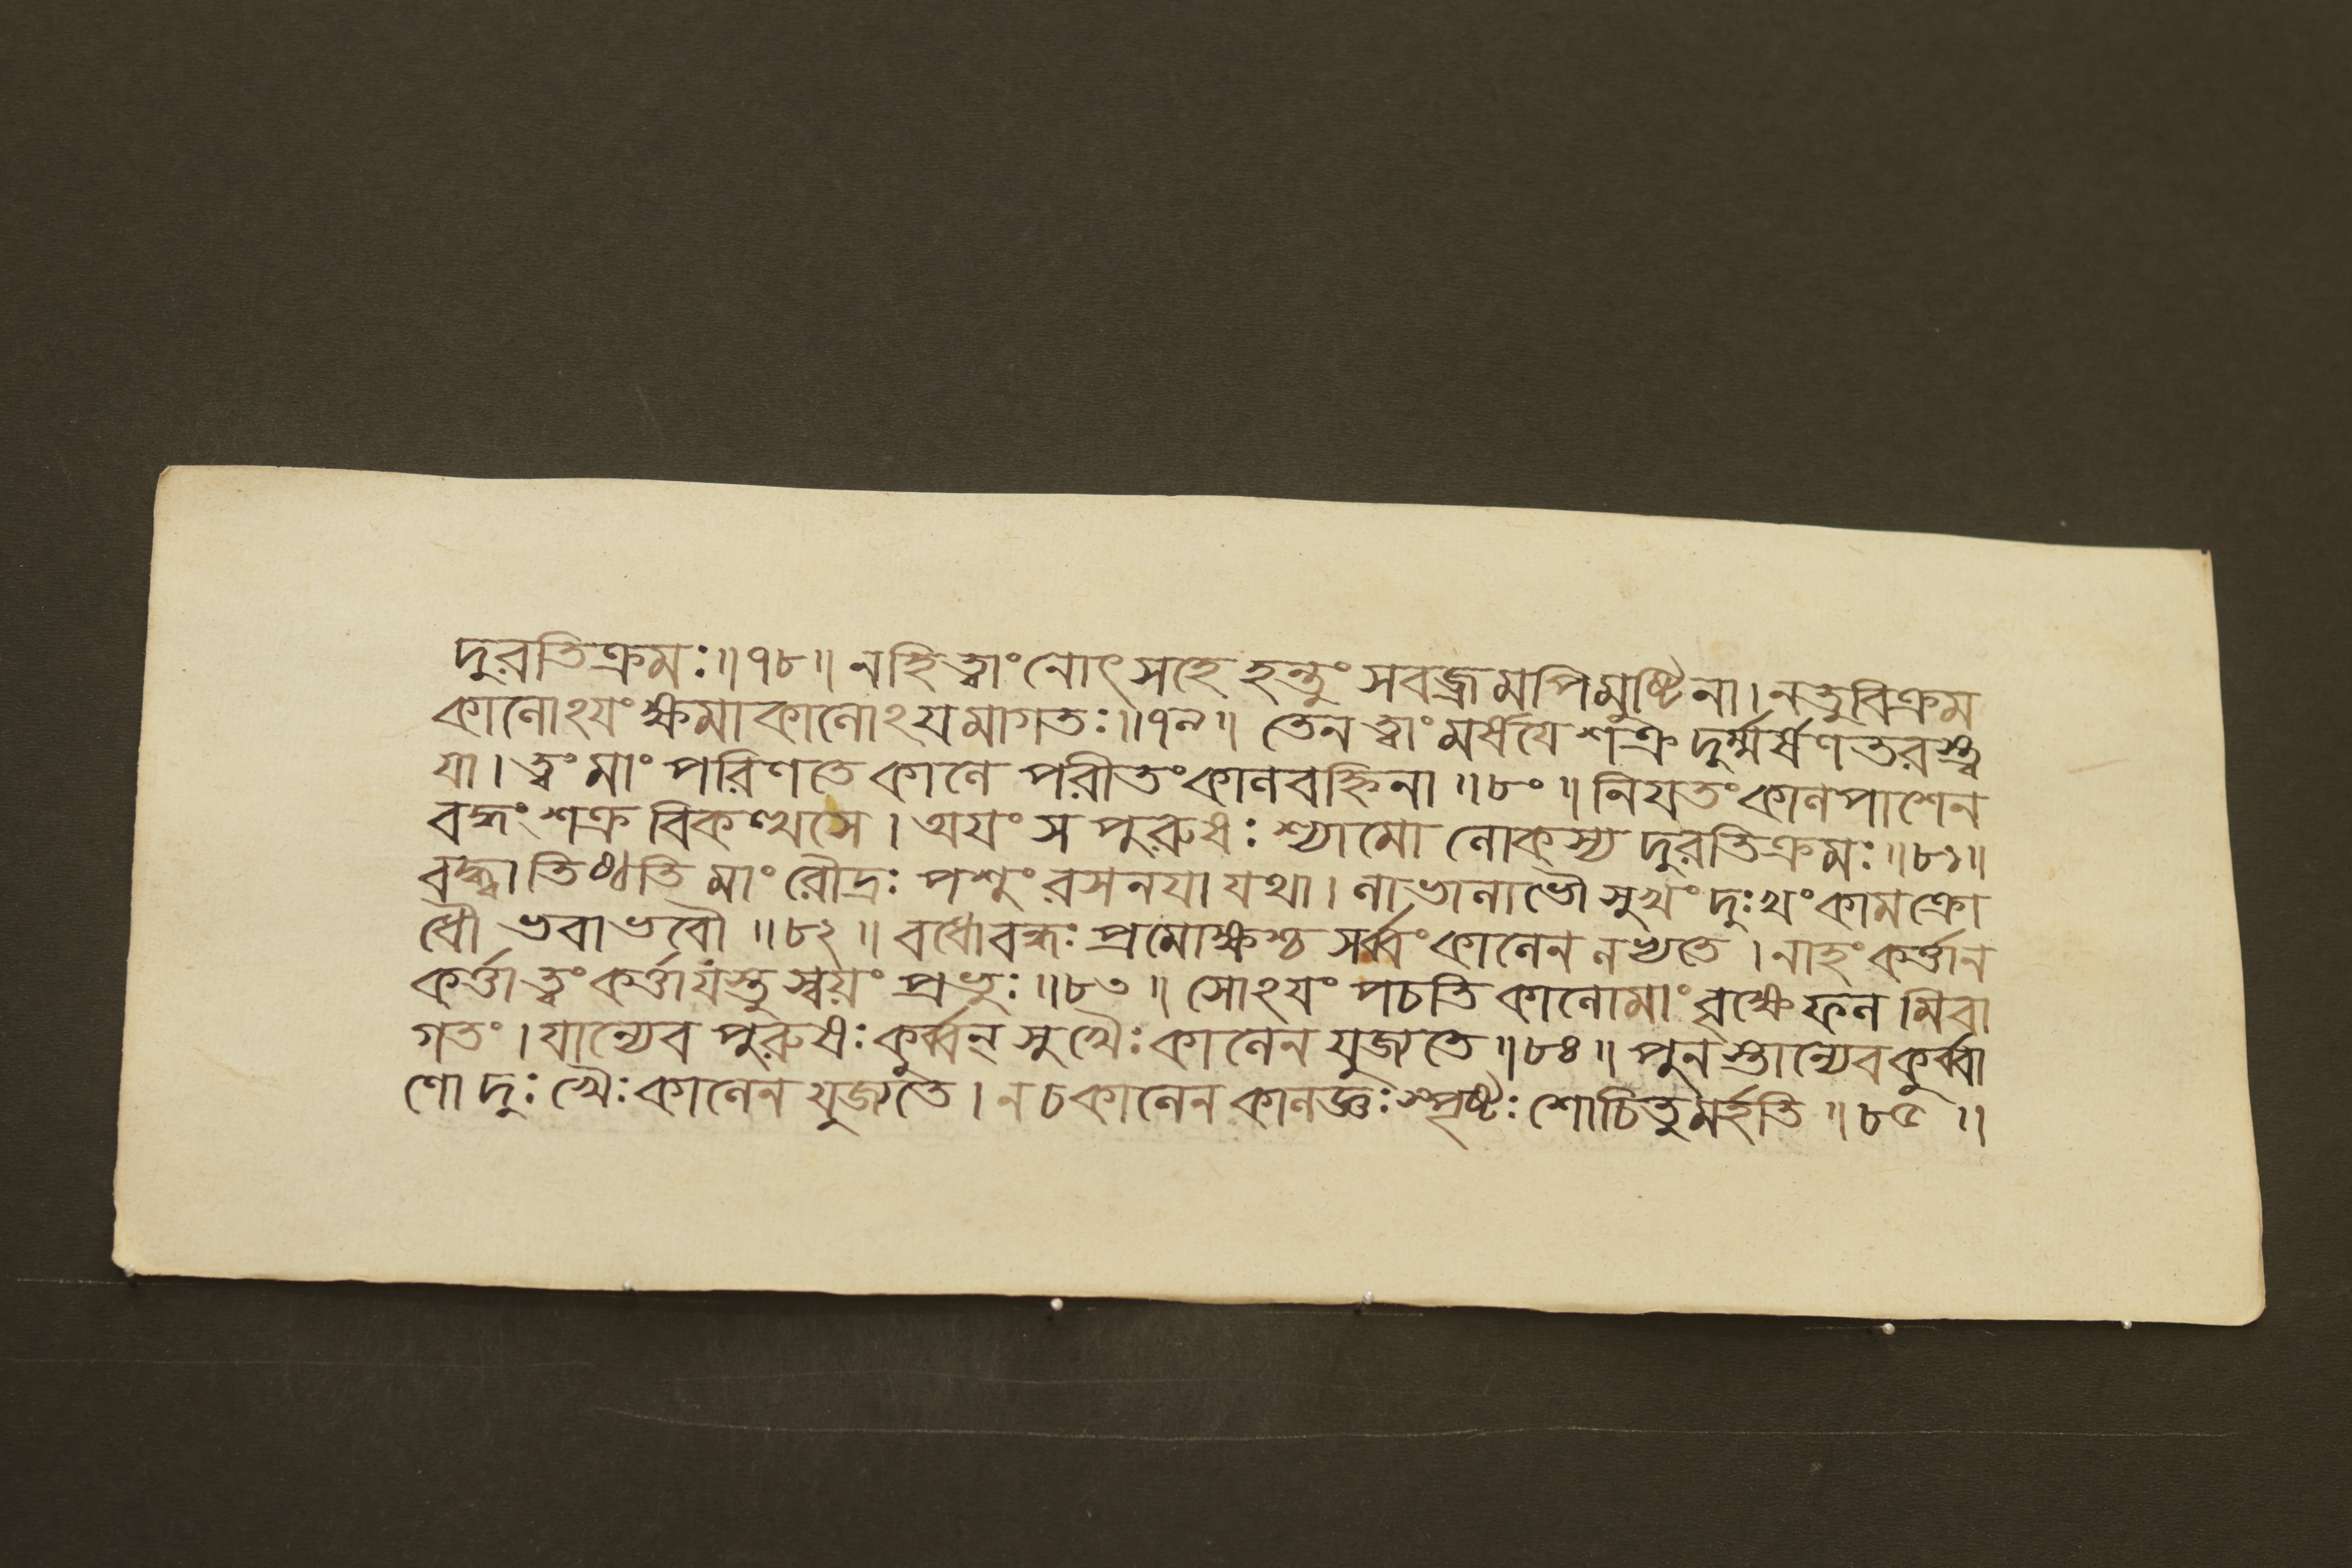 দুরতিক্রমঃ॥৭৮॥ নহি ত্বাং নোৎসহে হন্তুং সবজ্রমপিমুষ্টিনা। নতুবিক্রম
কালোঽযংক্ষমাকালোঽযমাগতঃ॥৭৯॥ তেন ত্বাং মর্ষযে শক্র দুর্ম্মর্ষণতরস্ত্ব
যা। ত্বং মাং পরিণতে কালে পরীতংকালবহ্নিনা॥৮০॥ নিযতংকালপাশেন
বদ্ধং শক্র বিকত্থসে। অযং স পুরুষঃ শ্যামো লোকস্য দুরতিক্রমঃ॥৮১॥
বদ্ধ্বা তিষ্ঠতি মাং রৌদ্রঃ পশুং রসনযা যথা। লাভালাভৌ সুখং দুঃখং কামক্রো
ধৌ ভবাভবৌ॥৮২॥ বধোবন্ধঃ প্রমোক্ষশ্চ সর্ব্বং কালেন লভ্যতে। নাহং কর্ত্তান
কর্ত্তা ত্বং কর্ত্তাযস্তু স্বয়ং প্রভুঃ॥৮৩॥ সোঽযং পচতি কালোমাং বৃক্ষেফল মিবা
গতং। যান্যেব পুরুষঃ কুর্ব্বন্ সুখৈঃ কালেন যুজ্যতে॥৮৪॥ পুনস্তান্যেবকুর্ব্বা
ণো দুঃখৈঃ কালেন যুজ্যতে। ন চ কালেন কালজ্ঞঃ স্পৃষ্টঃ শোচিতুমর্হতি॥৮৫॥